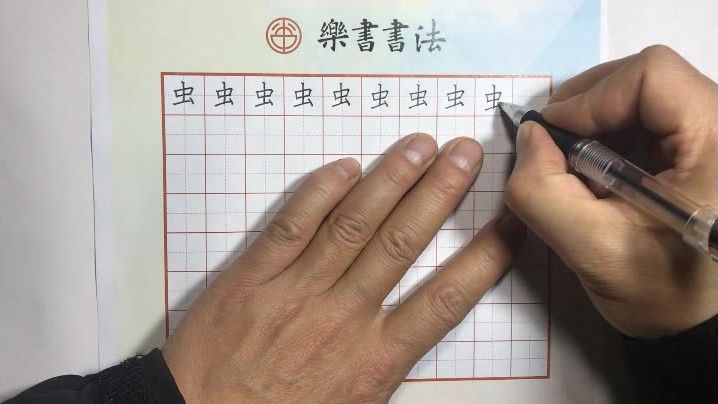 樂書書法
虫虫虫虫虫虫虫虫虫